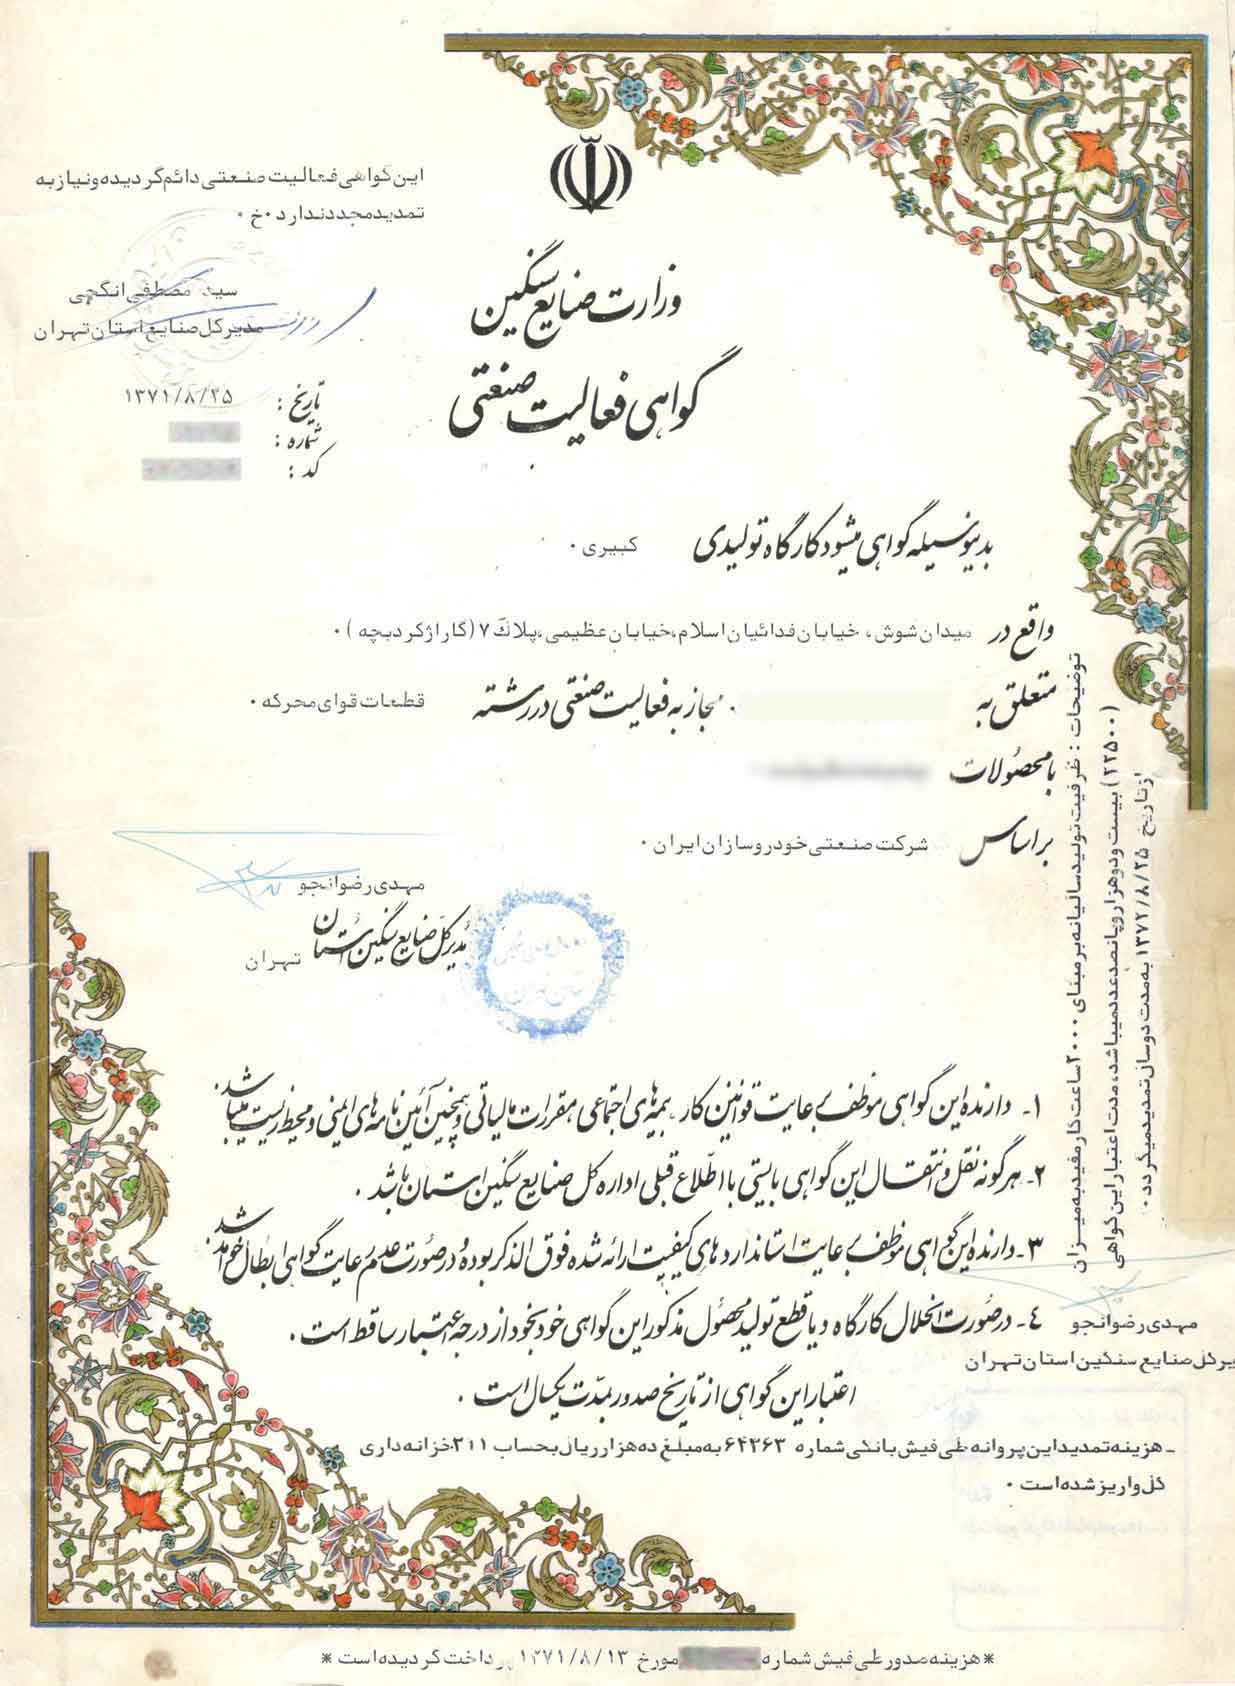 این گواهی فعالیت صنعتی دائم گردیده و نیاز به
تمدید مجدد ندارد ۰خ ۰
سید مصطفی انگجی
مدیر کل صنایع استان تهران
وزارت صنایع سنگین
گواهی فعالیت صنعتی
تاریخ : ۱۳۷۱/۸/۲۵
شماره :
کد :
بدینوسیله گواهی میشود کارگاه تولیدی کبیری ۰
واقع در میدان شوش، خیابان فدائیان اسلام، خیابان عظیمی، پلاک ۷ (گاراژ کردبچه) ۰
متعلق به ۰ مجاز به فعالیت صنعتی در رشته قطعات قوای محرکه ۰
با محصولات
بر اساس شرکت صنعتی خودروسازان ایران ۰
مهدی رضوانجو
مدیر کل صنایع سنگین استان تهران
توضیحات : ظرفیت تولید سالیانه بر مبنای ۲۰۰۰ ساعت کار مفید به میزان
(۲۲۵۰۰) بیست و دو هزار و پانصد عدد میباشد، مدت اعتبار این گواهی
از تاریخ ۱۳۷۲/۸/۲۵ به مدت دو سال تمدید میگردد ۰
۱- دارنده این گواهی موظف برعایت قوانین کار - بیمه های اجتماعی مقررات مالیاتی و همچنین آئین نامه های ایمنی و محیط زیست میباشد
۲- هرگونه نقل و انتقال این گواهی بایستی با اطلاع قبلی اداره کل صنایع سنگین استان باشد .
۳- دارنده این گواهی موظف برعایت استانداردهای کیفیت ارائه شده فوق الذکر بوده و در صورت عدم رعایت گواهی ابطال خواهد شد
۴- در صورت انحلال کارگاه و یا قطع تولید محصول مذکور این گواهی خود بخود از درجه اعتبار ساقط است .
مهدی رضوانجو
یر کل صنایع سنگین استان تهران
اعتبار این گواهی از تاریخ صدور بمدت یکسال است .
- هزینه تمدید این پروانه طی فیش بانکی شماره ۶۴۳۶۳ به مبلغ ده هزار ریال بحساب ۳۱۱ خزانه داری
کل واریز شده است ۰
* هزینه صدور طی فیش شماره مورخ ۱۳۷۱/۸/۱۳ پرداخت گردیده است *